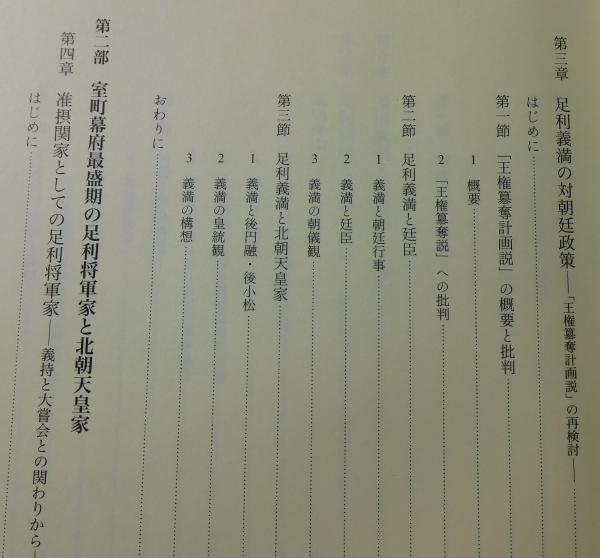 第三章 足利義満の対朝廷政策――「王権簒奪計画説」の再検討――
はじめに
第一節 「王権簒奪計画説」の概要と批判
1 概要
2 「王権簒奪説」への批判
第二節 足利義満と廷臣
1 義満と朝廷行事
2 義満と廷臣
3 義満の朝儀観
第三節 足利義満と北朝天皇家
1 義満と後円融・後小松
2 義満の皇統観
3 義満の構想
おわりに
第二部 室町幕府最盛期の足利将軍家と北朝天皇家
第四章 准摂関家としての足利将軍家――義持と大嘗会との関わりから―
はじめに